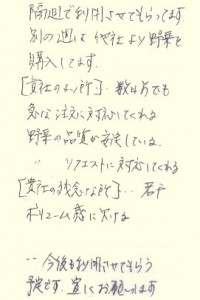 隔週で利用させてもらってます。
別の週は他社より野菜を
購入してます。
[貴社のよい所]‥数は少でも
急な注文に対応してくれる
野菜の品質が安定している。
〃 リクエストに対応してくれる
[貴社の残念な所]‥若干
ボリューム感に欠ける
‥今後も利用させてもらう
予定です。宜しくお願いします